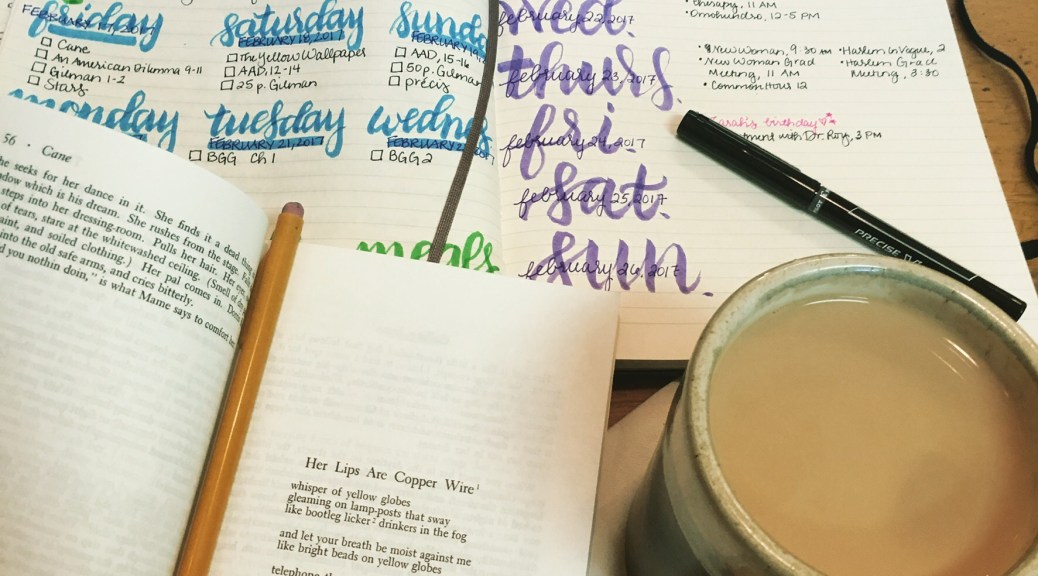 friday
FEBRUARY 17, 2017
Cane
An American Dilemma 9-11
Gilman 1-2
Stars
saturday
FEBRUARY 18, 2017
The Yellow Wallpaper
AAD, 12-14
25 p. Gilman
sund
FEBRUARY 19,
AAD, 15-16
50 p. Gilman
précis
monday
tuesday
FEBRUARY 21, 2017
BGG Ch 1
wednes
BGG 2
meals
wed.
february 22, 2017
therapy, 11 AM
Omohundro, 12-5 PM
thurs.
february 23, 2017
New Woman, 9:30 AM
New Woman Grad
Meeting, 11 AM
Common Hour 12
Harlem in Vogue, 2
Harlem Grad
Meeting, 3:30
fri.
february 24, 2017
Sarah's birthday
tment with Dr. Rory, 3 PM
sat.
february 25, 2017
sun.
february 26, 2017
PRECISE
56 · Cane
he seeks for her dance in it. She finds it a dead
dow which is his dream. She rushes from the stage.
steps into her dressing-room. Pulls her hair. Her eyes
of tears, stare at the whitewashed ceiling. (Smell of dry
aint, and soiled clothing.) Her pal comes in.
into the old safe arms, and cries bitterly.
d you nothin doin," is what Mame says to comfort her.
Her Lips Are Copper Wire¹
whisper of yellow globes
gleaming on lamp-posts that sway
like bootleg licker² drinkers in the fog
and let your breath be moist against me
like bright beads on yellow globes
telephone